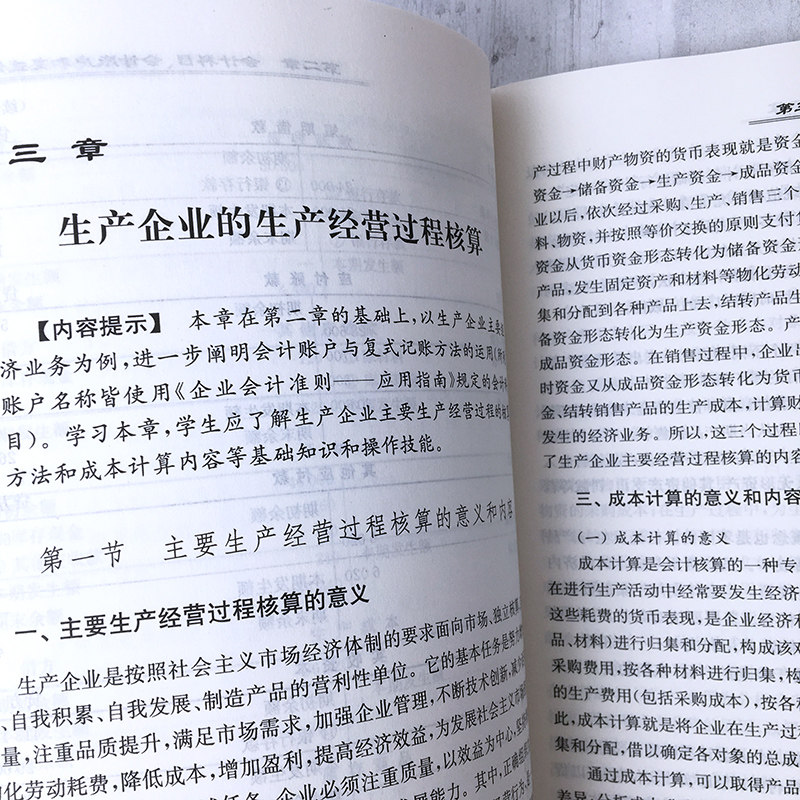 三章
生产企业的生产经营过程核算
【内容提示】 本章在第二章的基础上,以生产企业主要
济业务为例,进一步阐明会计账户与复式记账方法的运用(所
账户名称皆使用《企业会计准则——应用指南》规定的会计
目)。学习本章,学生应了解生产企业主要生产经营过程的
方法和成本计算内容等基础知识和操作技能。
第一节 主要生产经营过程核算的意义和内容
一、主要生产经营过程核算的意义
生产企业是按照社会主义市场经济体制的要求面向市场、独立核算
、自我积累、自我发展、制造产品的营利性单位。它的基本任务是
量,注重品质提升,满足市场需求,加强企业管理,不断技术创新,
化劳动耗费,降低成本,增加盈利,提高经济效益,为发展社会主义
任务,企业必须注重质量,以效益为中心,
展能力。其中,正确
第三
产过程中财产物资的货币表现就是资金
资金→储备资金→生产资金→成品资金
业以后,依次经过采购、生产、销售三个
料、物资,并按照等价交换的原则支付
资金从货币资金形态转化为储备资金
产品,发生固定资产和材料等物化劳动
集和分配到各种产品上去,结转产品生
备资金形态转化为生产资金形态。产
成品资金形态。在销售过程中,企业出
时资金又从成品资金形态转化为货币
金、结转销售产品的生产成本,计算财
发生的经济业务。所以,这三个过程
了生产企业主要经营过程核算的内容
三、成本计算的意义和内容
(一)成本计算的意义
成本计算是会计核算的一种专
在进行生产活动中经常要发生经济
这些耗费的货币表现,是企业经济利
品、材料)进行归集和分配,构成该对
采购费用,按各种材料进行归集,构
的生产费用(包括采购成本),按各种
此,成本计算就是将企业在生产过程
集和分配,借以确定各对象的总成
通过成本计算,可以取得产品